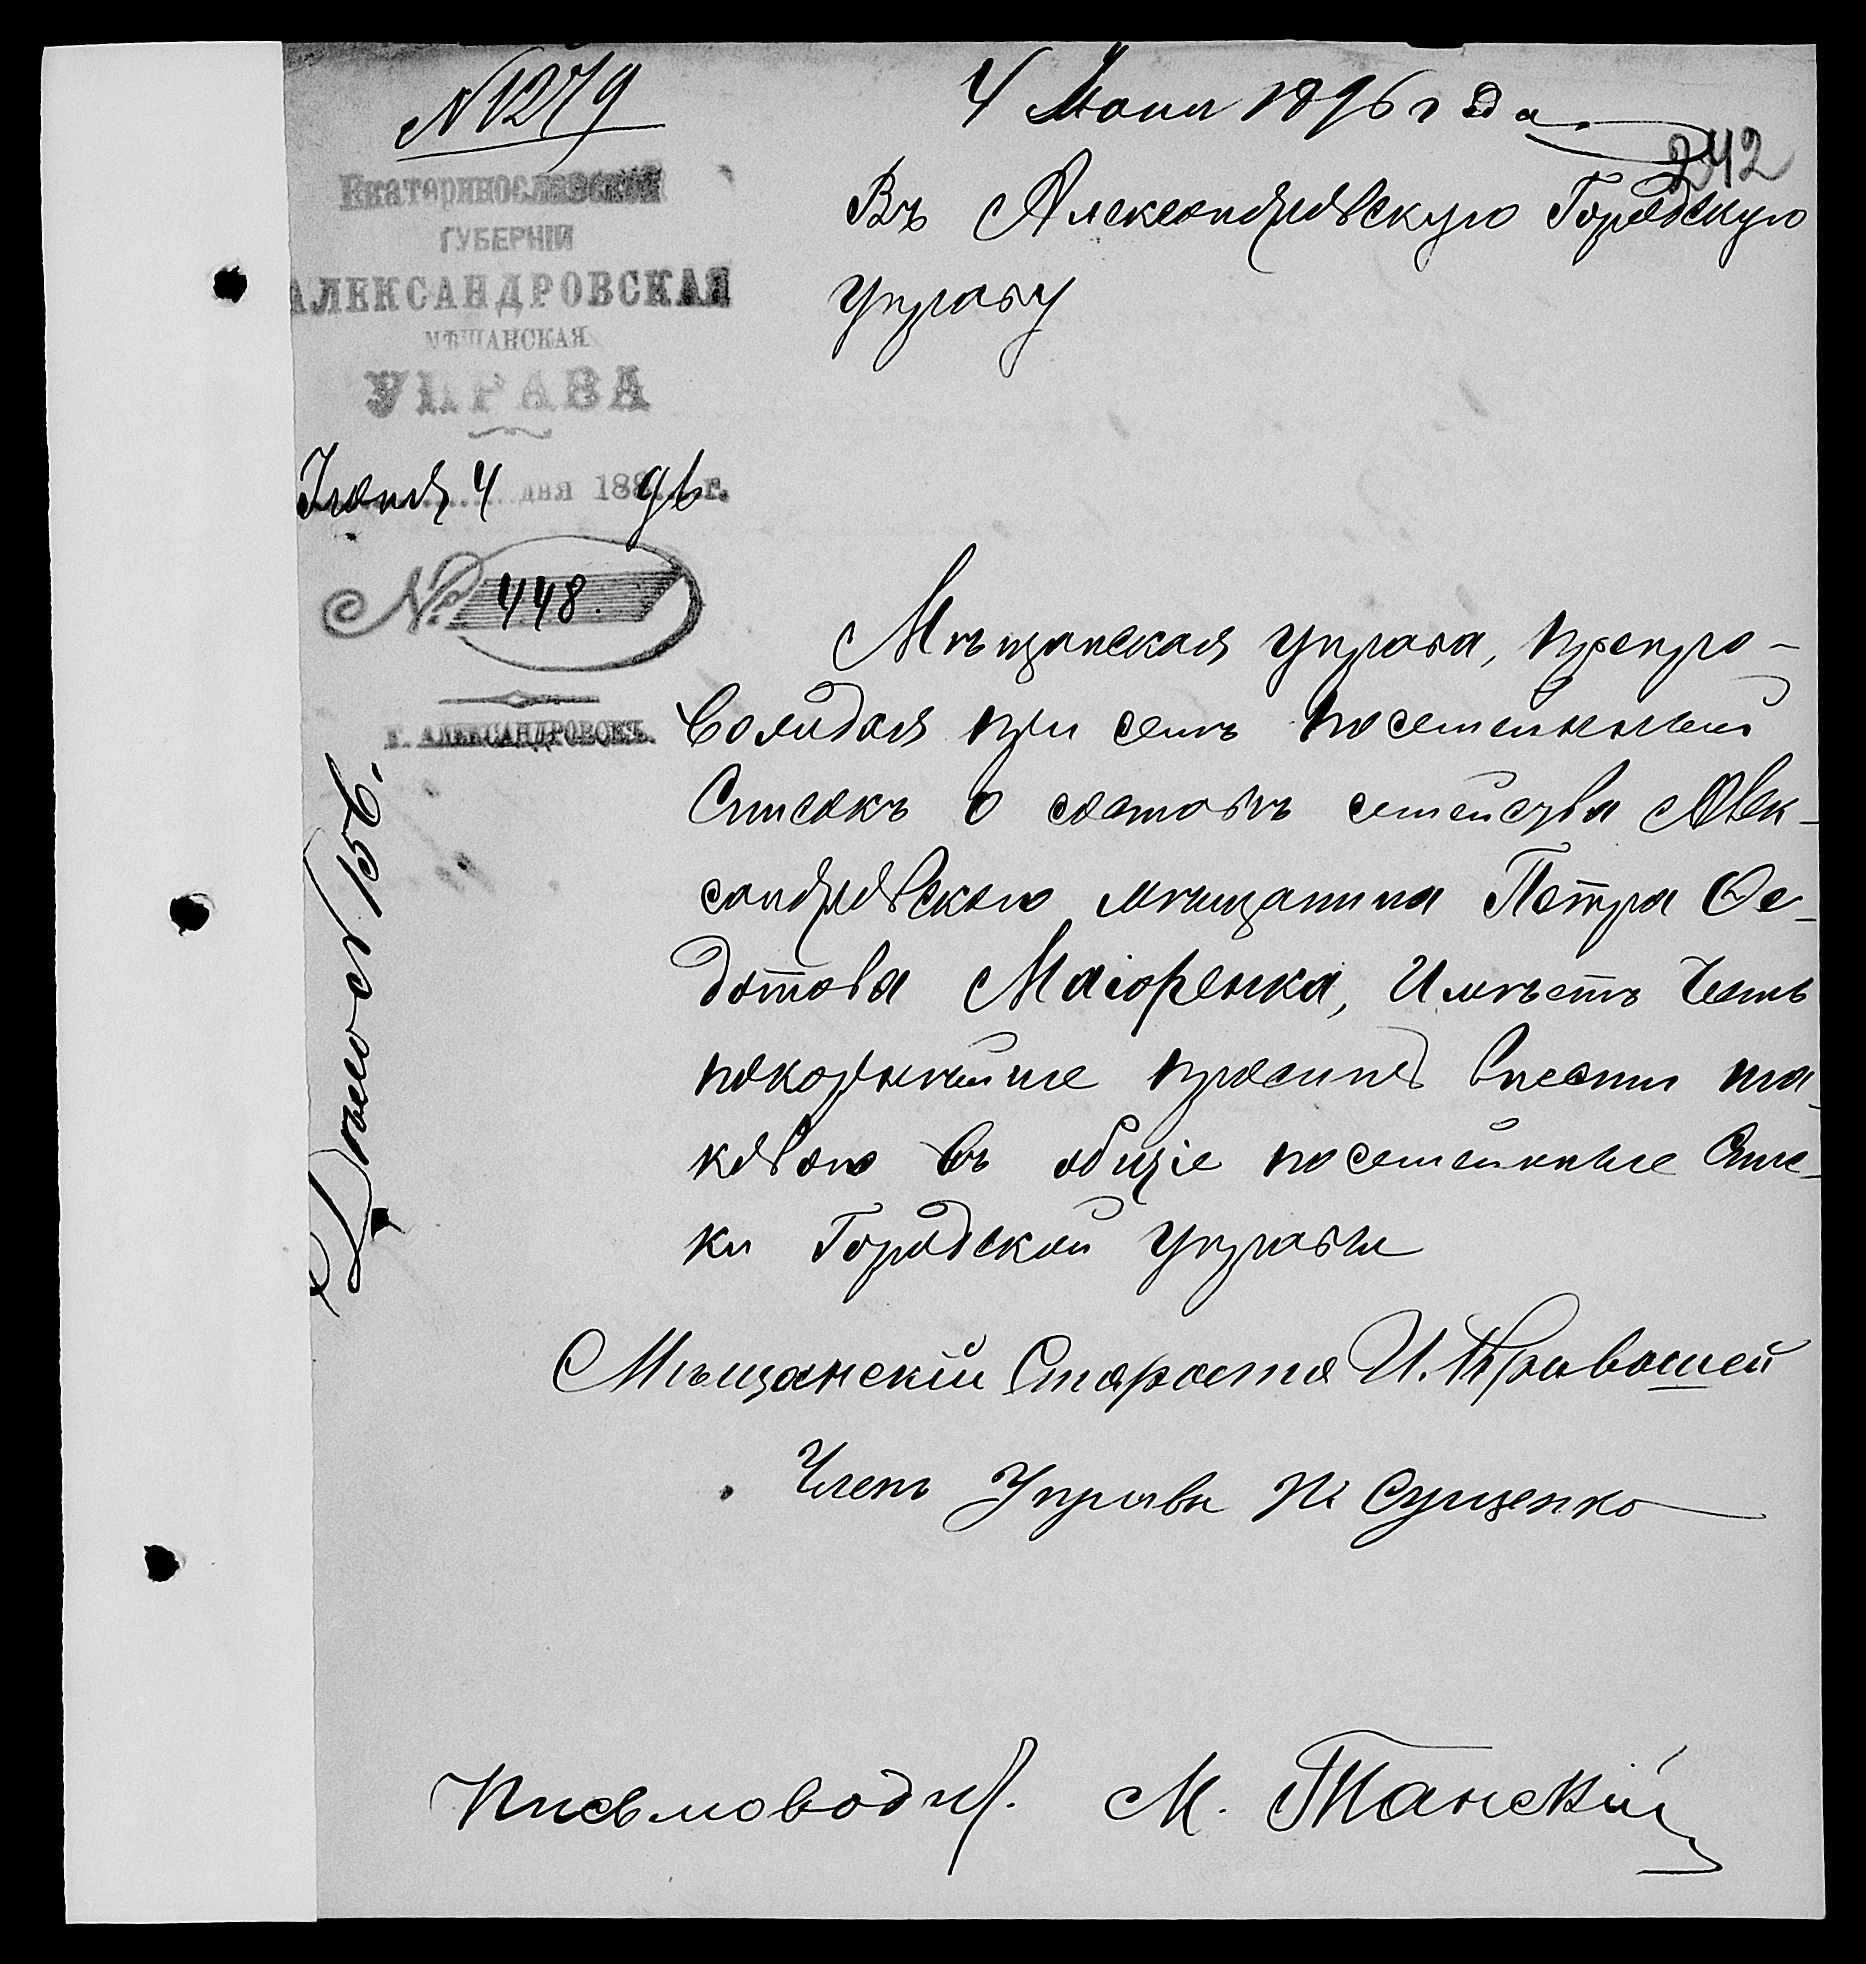 N 1279
4 Июня 1896 года
242
Екатеринославской
ГУБЕРНІИ
АЛЕКСАНДРОВСКАЯ
МѢЩАНСКАЯ
УПРАВА
Іюня 4 дня 1896 г.
№ 448.
г. АЛЕКСАНДРОВСКЪ.
Въ Александровскую Городскую
Управу
Мѣщанская Управа, препро-
вождая при семъ посемейный
Списокъ о составѣ семейства Алек-
сандровскаго мѣщанина Петра Ѳе-
дотова Маіоренка, Имѣетъ Честь
покорнѣйше просить внести та-
коваго въ общіе посемейные Спис-
ки Городской Управы
Мѣщанскій Староста И.
Членъ Управы Сущенко
Письмоводит. М. Танскій
N 156.